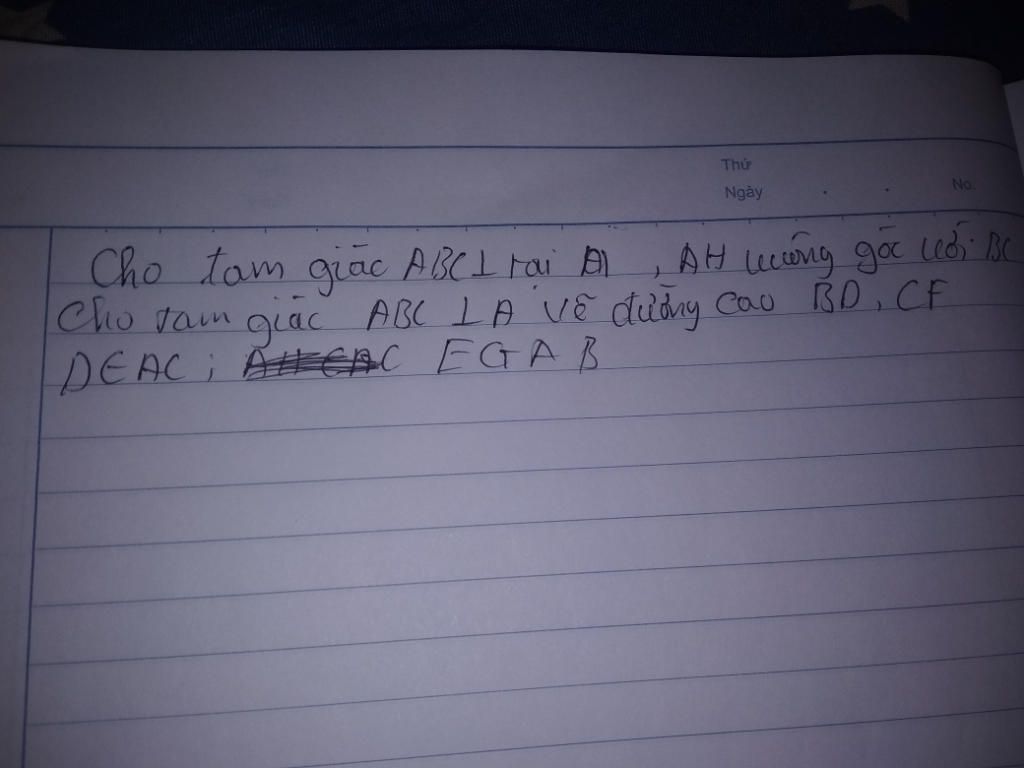 Thứ
Ngày . . No.
Cho tam giác ABC⊥ tại A, AH vuông góc với BC
Cho tam giác ABC ⊥ A vẽ đường cao BD, CF
D∈AC; C E∈AB